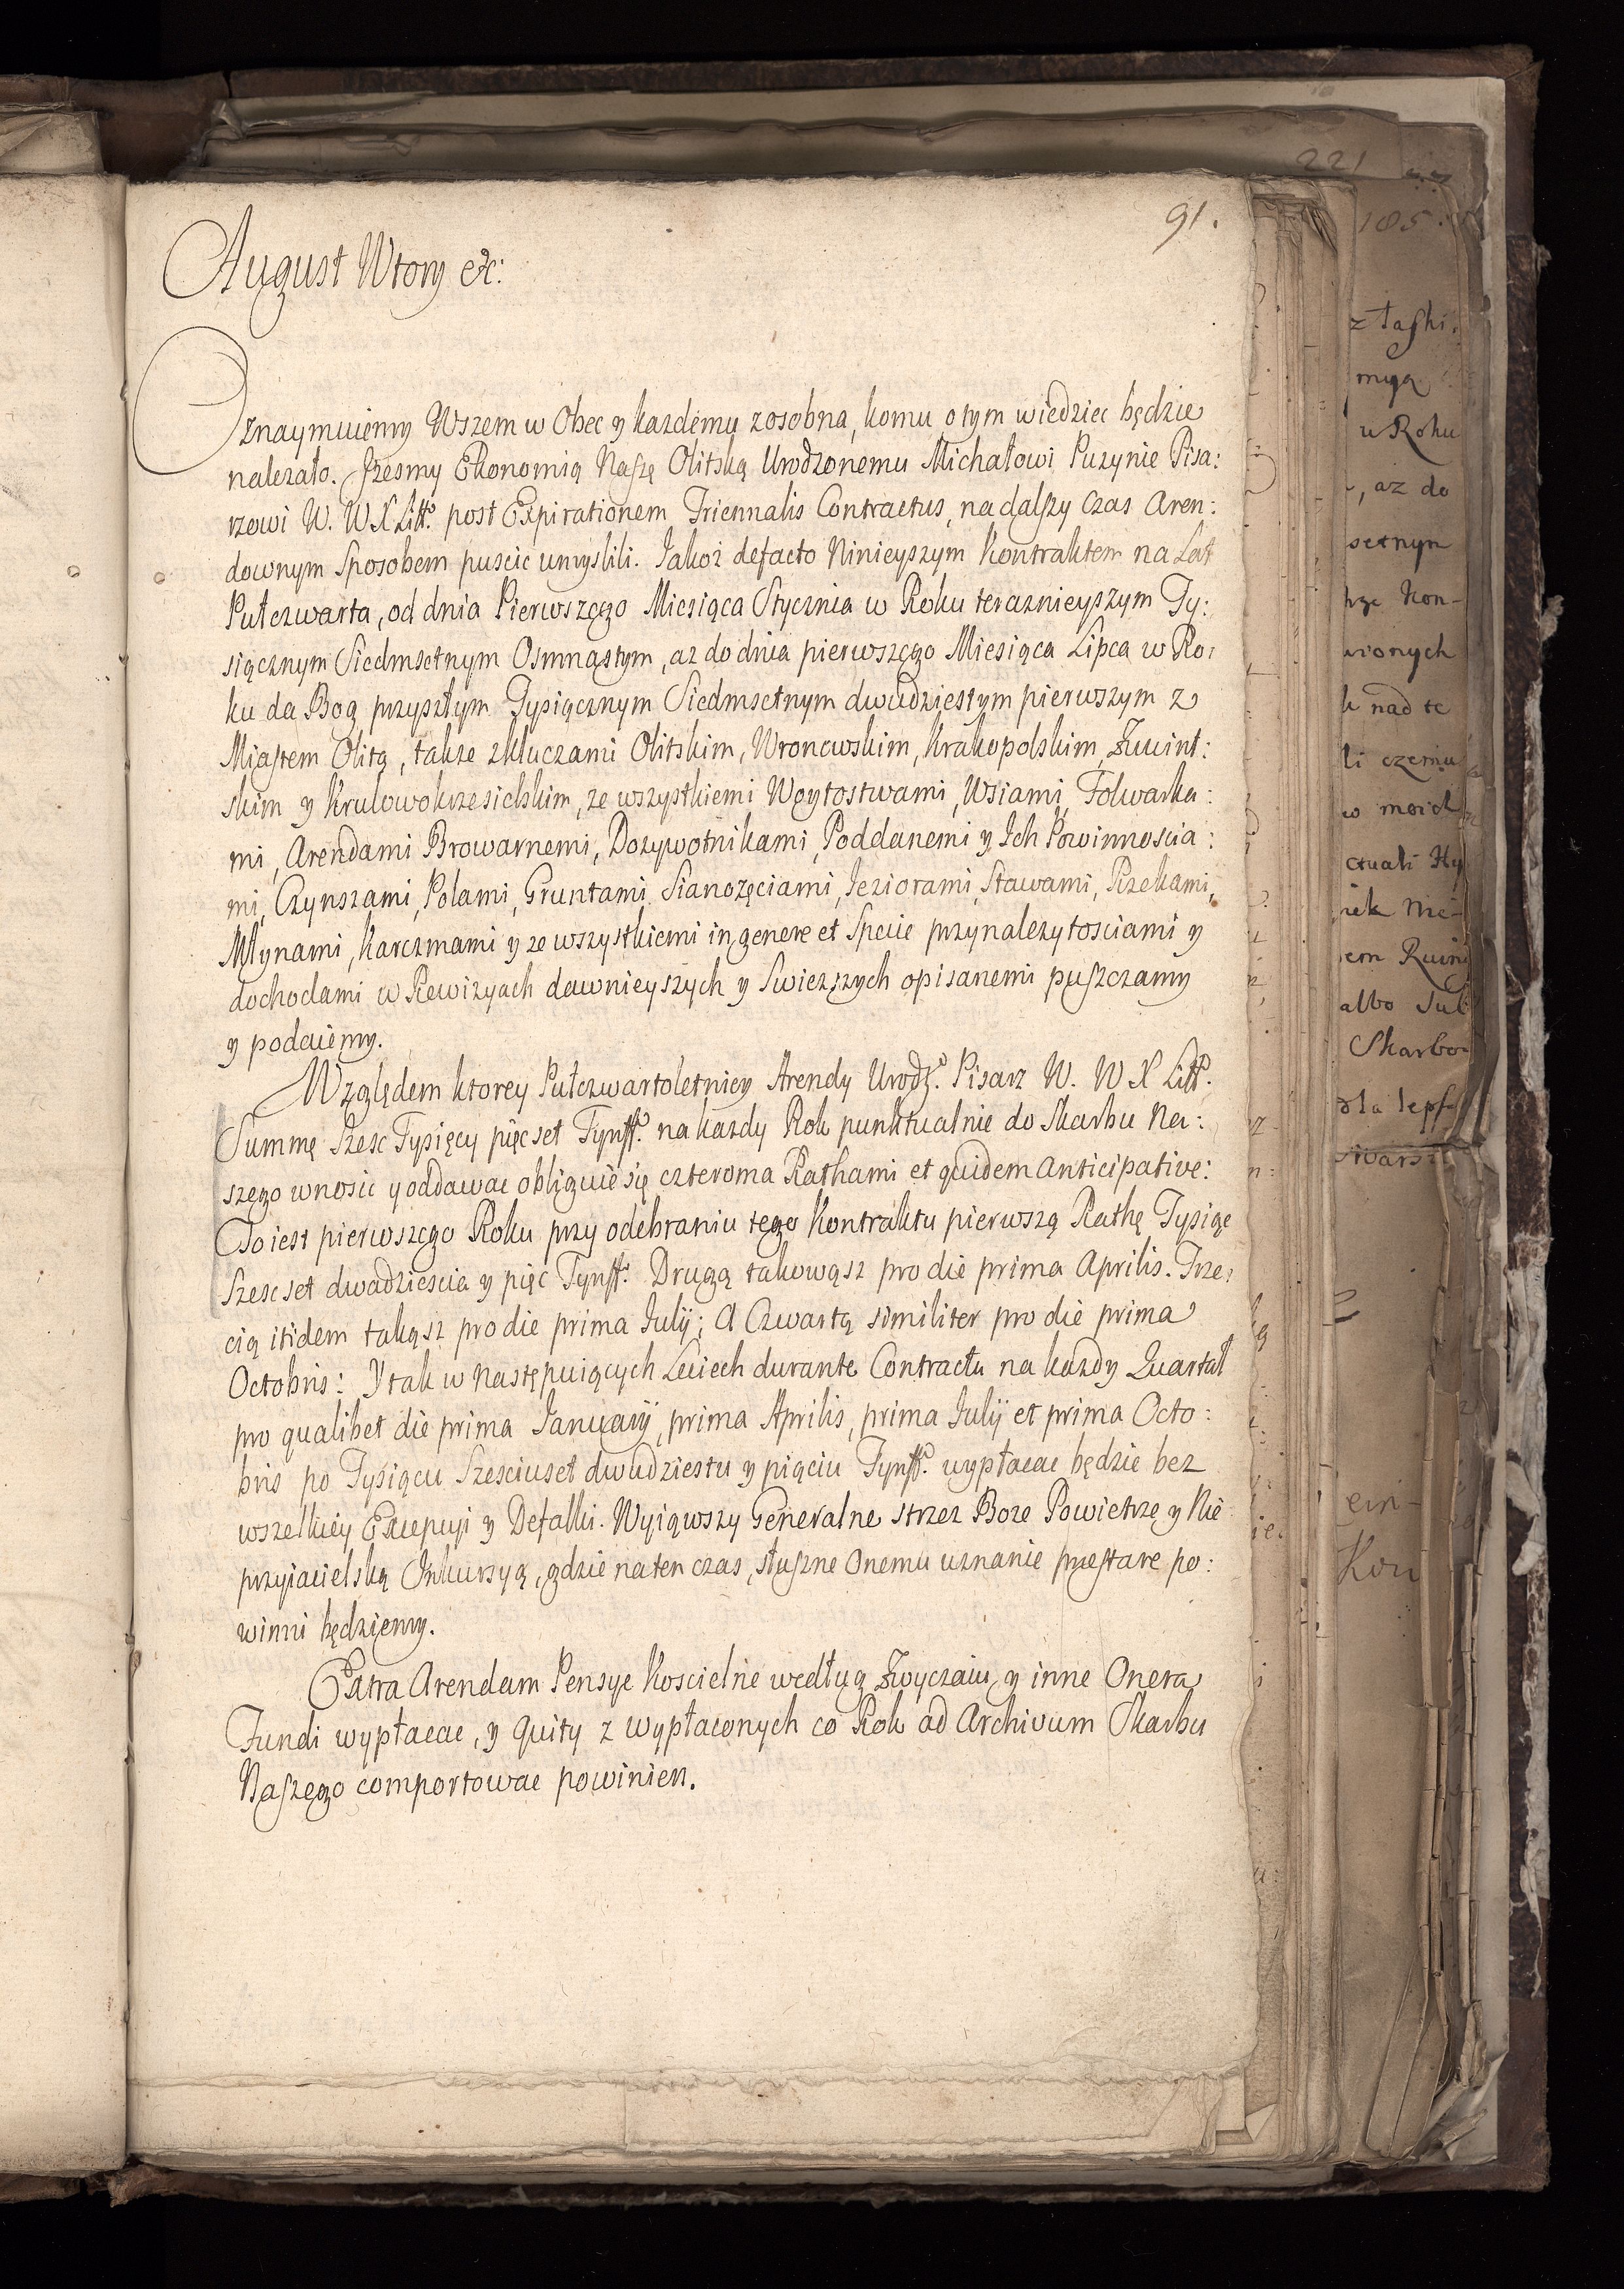 91.
August Wtory etc:
Oznaymuiemy Wszem w Obec y kazdemu zosobna, komu otym wiedziec będzie
nalezało. Iżesmy Ekonomią Naszę Olitską Urodzonemu Michałowi Puzynie Pisa:
rzowi W. W X Litt. post Expirationem Triennalis Contractus, na dalszy czas Aren:
downym Sposobem puscic umyslili. Jakoż defacto Ninieyszym Kontraktem na Lat
Pułczwarta, od dnia Pierwszego Miesiąca Stycznia w Roku teraznieyszym Ty:
siącznym Siedmsetnym Osmnastym, az do dnia pierwszego Miesiąca Lipca w Ro:
ku da Bog przyszłym Tysiącznym Siedmsetnym dwudziestym pierwszym z
Miastem Olitą, takze z kluczami Olitskim, Wronowskim, Krakopolskim, Zwint:
skim y Krulowokrzesielskim, ze wszystkiemi Woytostwami, Wsiami, Folwarka:
mi, Arendami Browarnemi, Dozywotnikami, Poddanemi y Ich Powinnoscia:
mi, Czynszami, Polami, Gruntami, Sianozęciami, Jeziorami, Stawami, Rzekami,
Młynami, Karczmami y ze wszystkiemi in genere et Specie przynalezytosciami y
dochodami w Rewizyach dawnieyszych y Swiezszych opisanemi puszczamy
y podaiemy.
Względem ktorey Pułczwartoletniey Arendy Urodz. Pisarz W. W X Litt.
Summę Szesc Tysięcy pięcset Tynff. na kazdy Rok punktualnie do Skarbu Na:
szego wnosic y oddawac obliguie się czteroma Rathami et quidem anticipative:
To iest pierwszego Roku przy odebraniu tego Kontraktu pierwszą Rathę Tysiąc
Szescset dwadziescia y pięc Tynff. Drugą takowąsz pro die prima Aprilis. Trze:
cią itidem takąsz pro die prima Julij; A Czwartą similiter pro die prima
Octobris: Y tak w następuiących Leciech durante Contractu na kazdy Quartał
pro qualibet die prima Januarij, prima Aprilis, prima Julij et prima Octo:
bris po Tysiącu Szesciuset dwudziestu y piąciu Tynff. wypłacac będzie bez
wszelkiey Excepcyi y Defalki. Wyiąwszy Generalne strzez Boze Powietrze y Nie
przyiacielską Inkursyą, gdzie na ten czas, słuszne Onemu uznanie przestare po:
winni będziemy.
Extra Arendam Pensye Koscielne według Zwyczaiu, y inne Onera
Fundi wypłacac, y quity z wypłaconych co Rok ad Archivum Skarbu
Naszego comportowac powinien.
221
185.
z łaski
myą
w Roku
, az do
setnym
Kon-
wionych
k nad te
li czemu
w moich
ctuali Hy
rek Nie-
em Ruiny
albo Sub
Skarbo-
dla lepsz
ein-
Kon